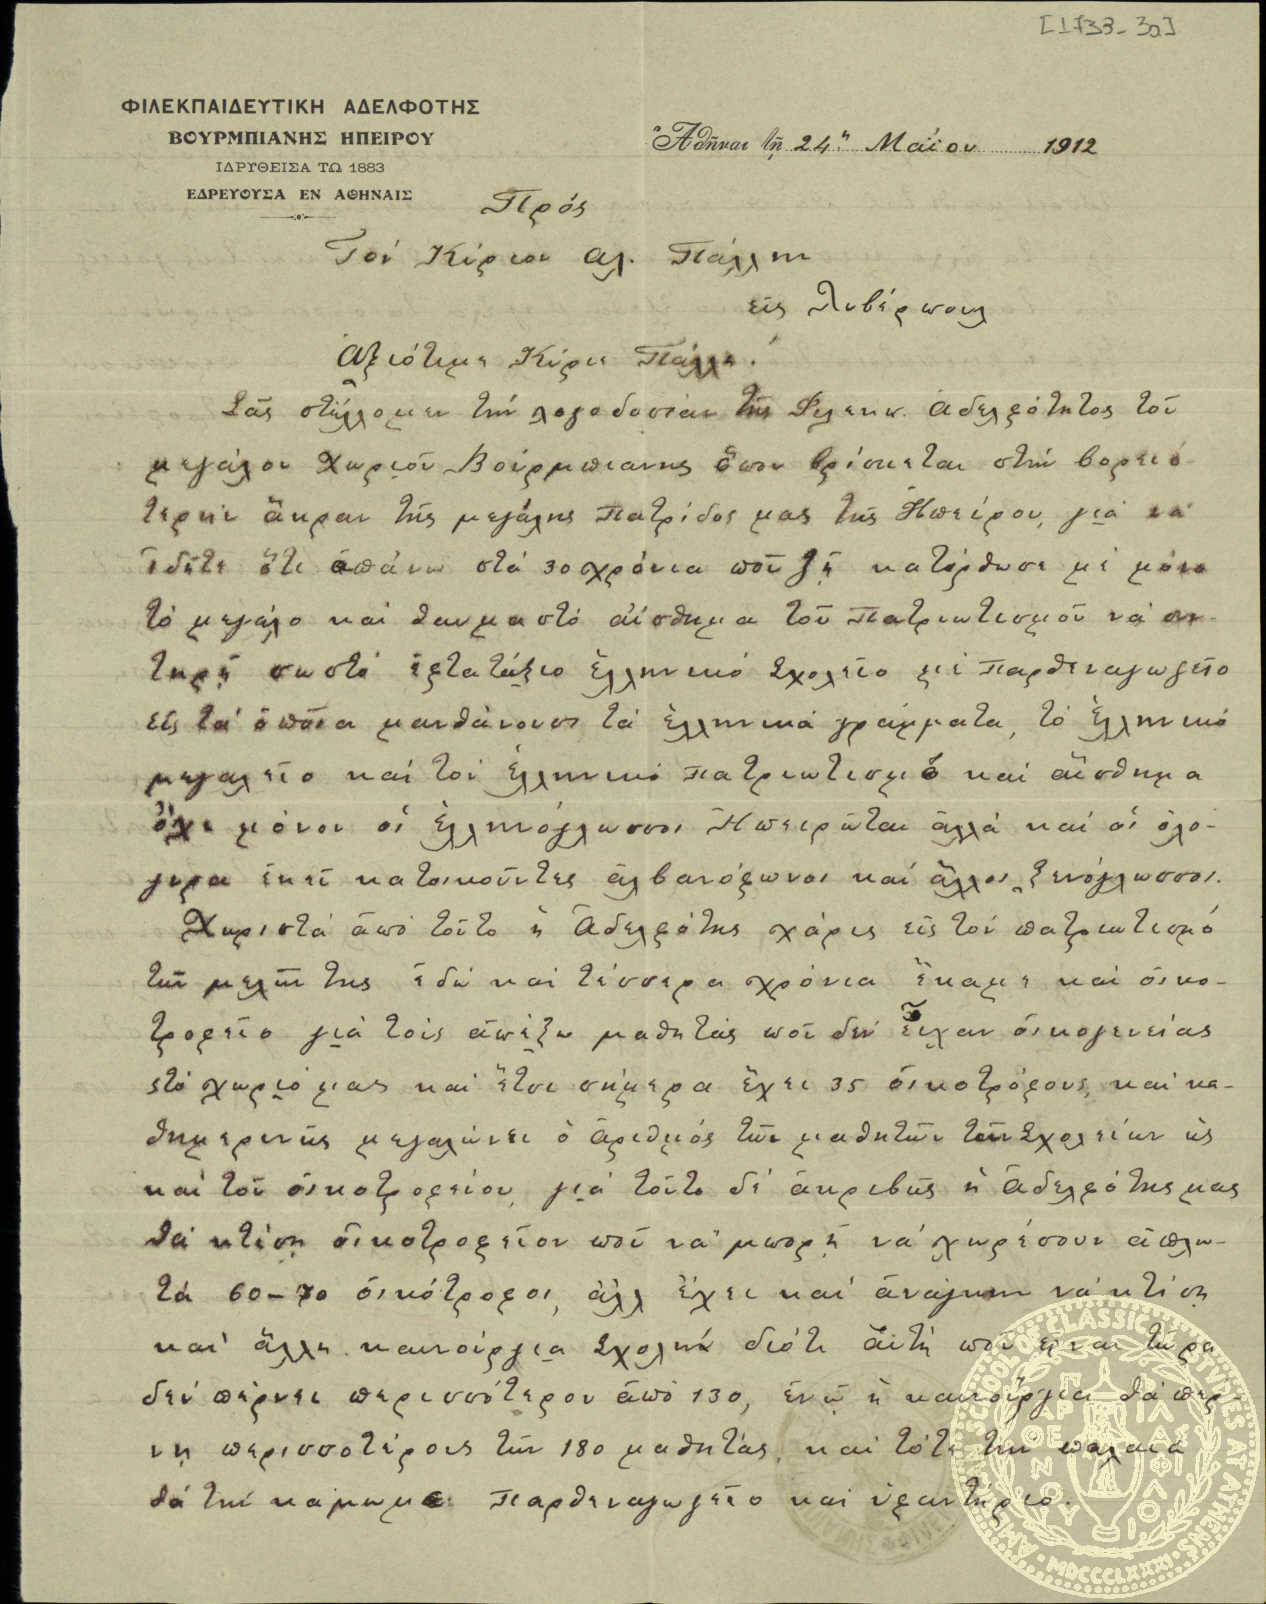 [1733-3α]
ΦΙΛΕΚΠΑΙΔΕΥΤΙΚΗ ΑΔΕΛΦΟΤΗΣ
ΒΟΥΡΜΠΙΑΝΗΣ ΗΠΕΙΡΟΥ
ΙΔΡΥΘΕΙΣΑ ΤΩ 1883
ΕΔΡΕΥΟΥΣΑ ΕΝ ΑΘΗΝΑΙΣ
Ἀθῆναι τῇ 24ῃ Μαΐου 1912
Πρός
Τόν Κύριον Αλ. Πάλλην
εἰς Λυβέρπουλ
Αξιότιμε Κύριε Πάλλη!
Σᾶς στέλλομεν τήν λογοδοσίαν τῆς Φιλεκπ. Αδελφότητος τοῦ
μεγάλου χωριοῦ Βούρμπιανης ὅπου βρίσκεται στήν βορειό-
τερην ἄκραν τῆς μεγάλης Πατρίδος μας τῆς Ηπείρου, γιά νά
ἰδῆτε ὅτι ἀπάνω στά 30 χρόνια ποῦ ζῇ κατόρθωσε μέ μόνο
τό μεγάλο καί θαυμαστό αἴσθημα τοῦ Πατριωτισμοῦ νά συν-
τηρῇ σωστό ἑφτατάξιο ἑλληνικό Σχολεῖο μέ Παρθεναγωγεῖο
εἰς τά ὁποῖα μανθάνουν τά ἑλληνικά γράμματα, τό ἑλληνικό
μεγαλεῖο καί τόν ἑλληνικό πατριωτισμό καί αἴσθημα
ὄχι μόνον οἱ ἑλληνόγλωσσοι Ηπειρῶται ἀλλά καί οἱ ὁλό-
γυρα ἐκεῖ κατοικοῦντες ἀλβανόφωνοι καί ἄλλοι ξενόγλωσσοι.
Χωριστά ἀπό τοῦτο ἡ Ἀδελφότης χάρις εἰς τόν πατριωτισμό
τῶν μελῶν της ἐδῶ καί τέσσερα χρόνια ἔκαμε καί οἰκο-
τροφεῖο γιά τούς ἀπέξω μαθητάς ποῦ δέν εἶχαν οἰκογενείας
στό χωριό μας καί ἔτσι σήμερα ἔχει 35 οἰκοτρόφους, καί κα-
θημερινῶς μεγαλώνει ὁ ἀριθμός τῶν μαθητῶν τῶν Σχολείων ὡς
καί τοῦ οἰκοτροφείου, γιά τοῦτο δέ ἀκριβῶς ἡ Ἀδελφότης μας
θά κτίσῃ οἰκοτροφεῖον ποῦ νά μπορῇ νά χωρέσουν ἁπλω-
τά 60-70 οἰκότροφοι, ἀλλ ἔχει καί ἀνάγκην νά κτίσῃ
καί ἄλλη καινούργια Σχολήν διότι αὐτή ποῦ εἶναι τώρα
δέν πέρνει περισσότερον ἀπό 130, ἐνῷ ἡ καινούργια θά πέρ-
νῃ περισσοτέρους τῶν 180 μαθητάς, καί τότε τήν παλαιά
θά τήν κάμωμε Παρθεναγωγεῖο καί ὑφαντήριο.
AMERICAN SCHOOL OF CLASSICAL STUDIES AT ATHENS
MDCCCLXXXI